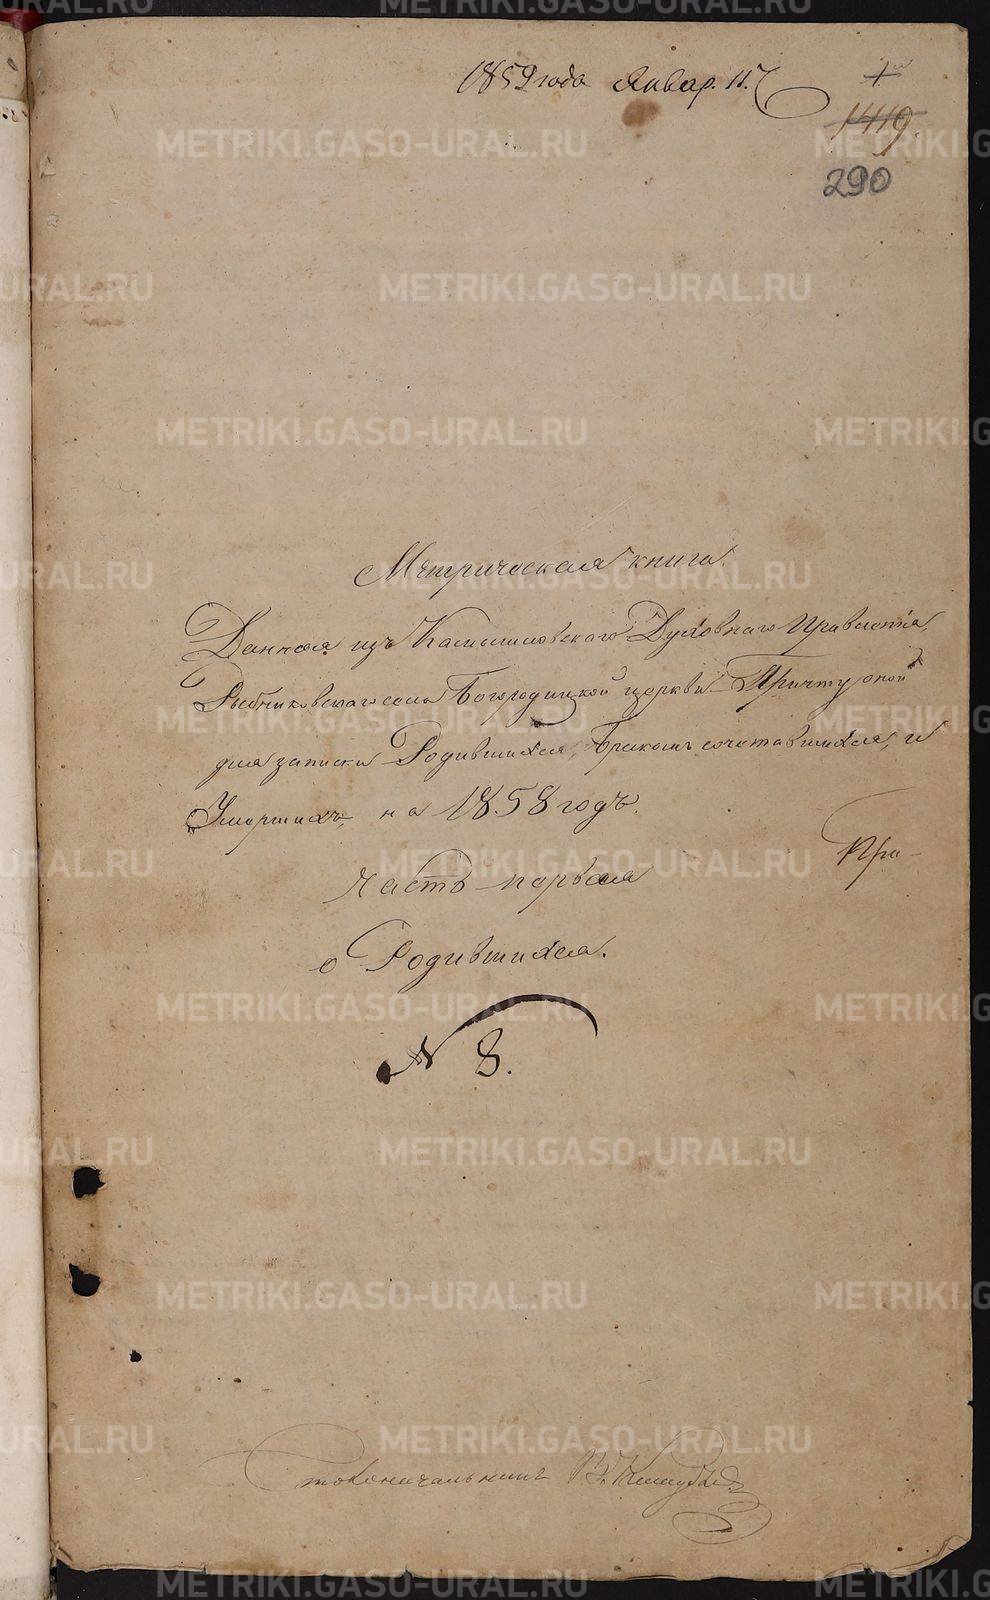 1859 года Январ. 11.
1419.
290
Метрическая книга.
Данная изъ Камышловскаго Духовнаго Правленія
Рыбниковскаго села Богородицкой церкви Причту оной
для записки Родившихся, Бракомъ сочетавшихся, и
Умершихъ, на 1858 годъ.
При-
Часть первая
о Родившихся.
N 8.
Столоначальникъ В.
METRIKI.GASO-URAL.RU